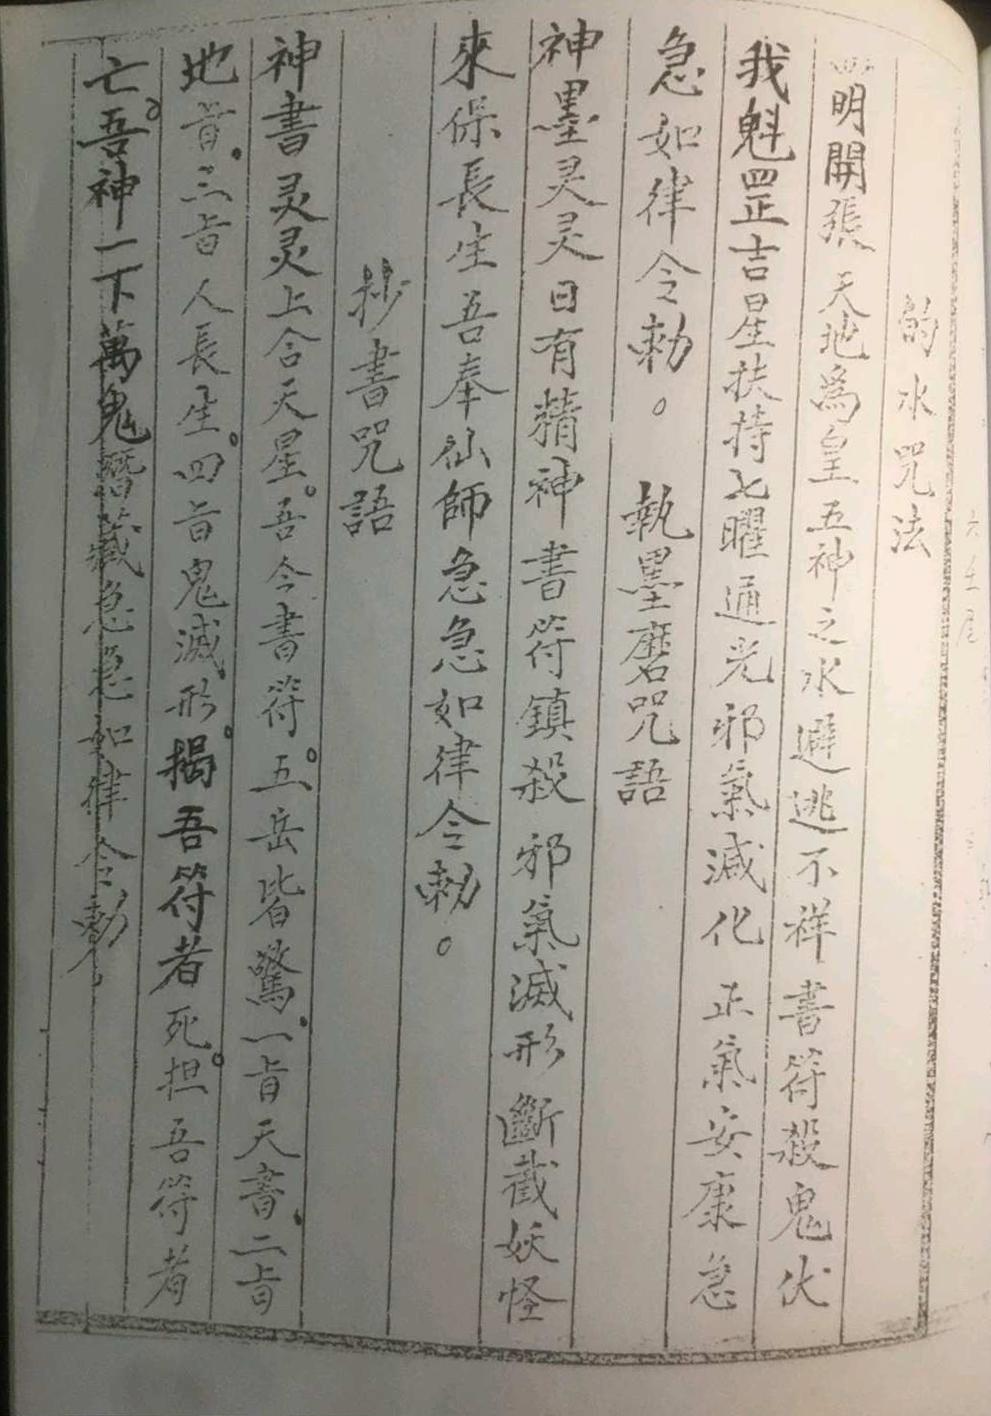 的水咒法
明開張天地為皇五神之水避逃不祥書符殺鬼伏
我魁罡吉星扶持七曜通光邪氣減化正氣安康急
急如律令勅。執墨磨咒語
神墨灵灵日有精神書符鎮殺邪氣滅形斷截妖怪
來保長生吾奉仙師急急如律令勅。
抄書咒語
神書灵灵上合天星。吾今書符。五岳皆驚、一旨天書、二旨
地旨、三旨人長生。四旨鬼滅形。揭吾符者死。担吾符者
亡。吾神一下萬鬼潛藏急急如律令勅